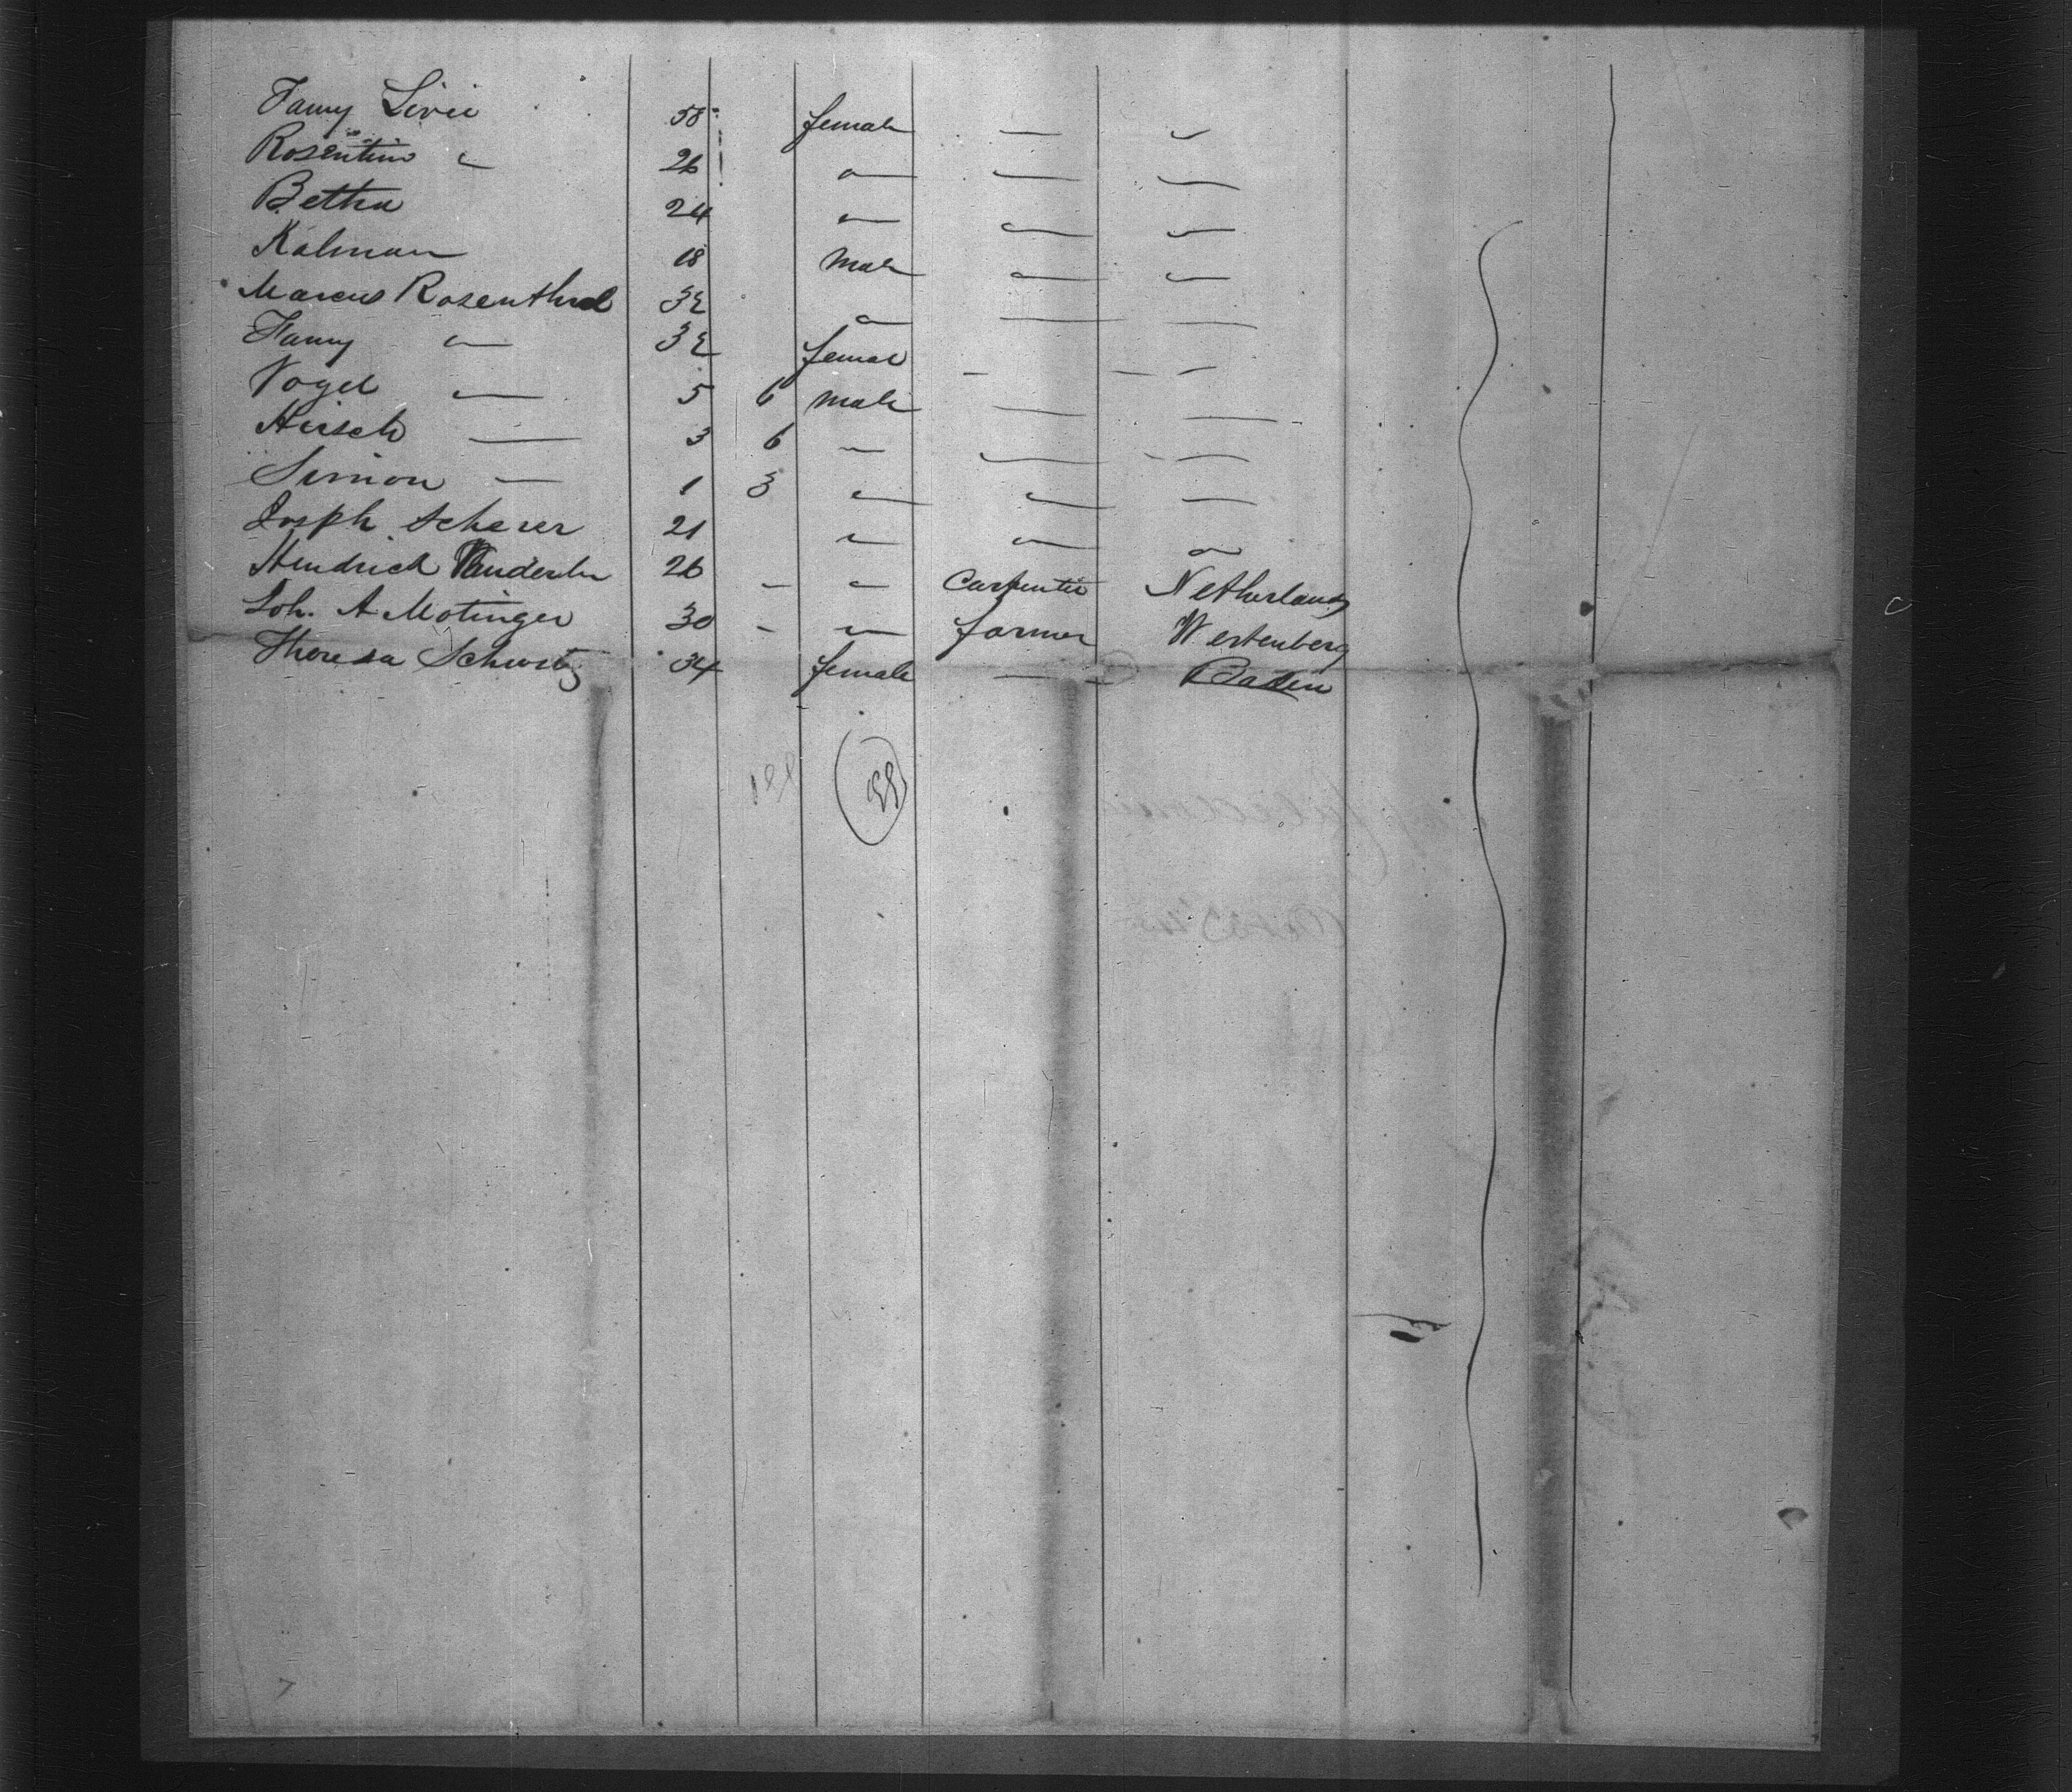 Fanny Livie 58 female — —
Rosentine " 26 " — —
Betha 24 " — —
Kalman 18 male — —
Marcus Rosenthal 32 " — —
Fanny — 32 female — —
Vogel — 5 6 male — —
Hirsch — 3 6 — — —
Simon — 1 3 " — —
Joseph Scherer 21 " — —
Hendrich 26 - " Carpenter Netherlands
Joh. A Motinger 30 - " farmer Wertenberg
Theresa 34 female — Baden